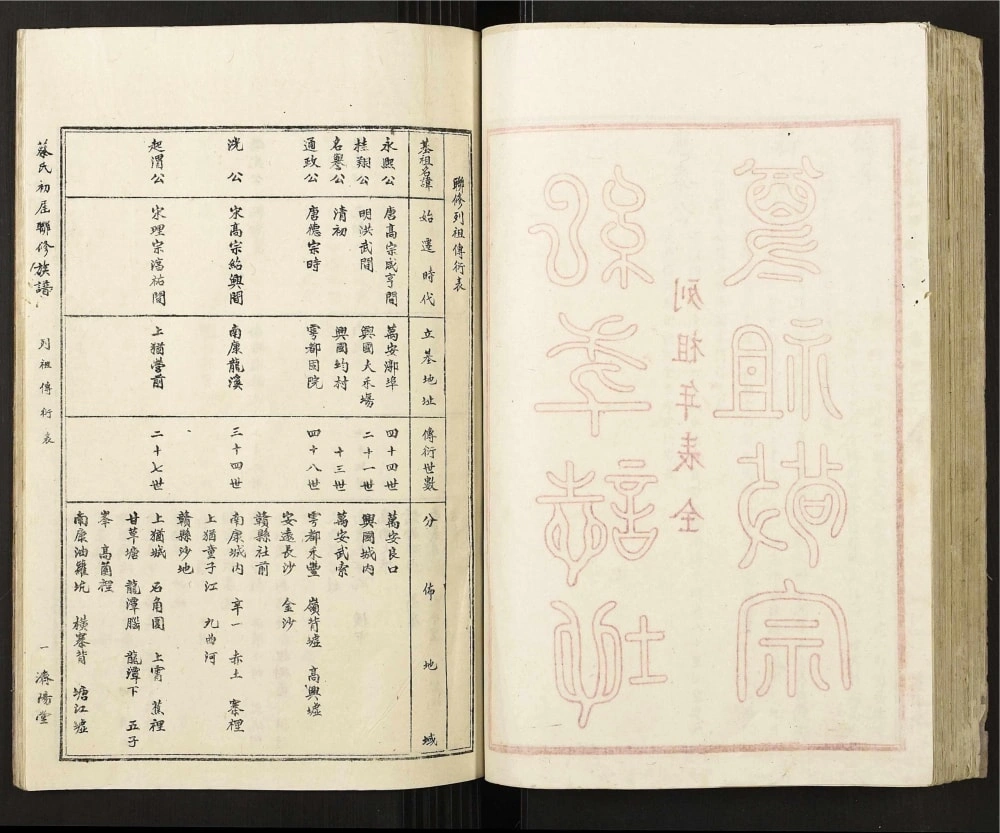 列祖年表 全
聯修列祖傳衍表
基祖名諱 始遷時代 立基地址 傳衍世數 分佈地域
永熙公 唐高宗咸亨間 萬安漷埠 四十四世 萬安良口
桂翔公 明洪武間 興國大禾場 二十一世 興國城内
名譽公 清初 興國均村 十三世 萬安武索
通政公 唐德宗時 雩都固院 四十八世 雩都禾豐 嶺背墟 高興墟
安遠長沙 金沙
贛縣社前
洸公 宋高宗紹興間 南康龍溪 三十四世 南康城内 辛一 赤土 寨裡
上猶童子江 九曲河
贛縣沙地
起渭公 宋理宗淳祐間 上猶營前 二十七世 上猶城 石角圍 上霄 蕉裡
甘草塘 龍潭腦 龍潭下 五子
峯 高菌裡
南康油羅坑 橫寨背 塘江墟
蔡氏初屆聯修族譜 列祖傳衍表 一 濟陽堂